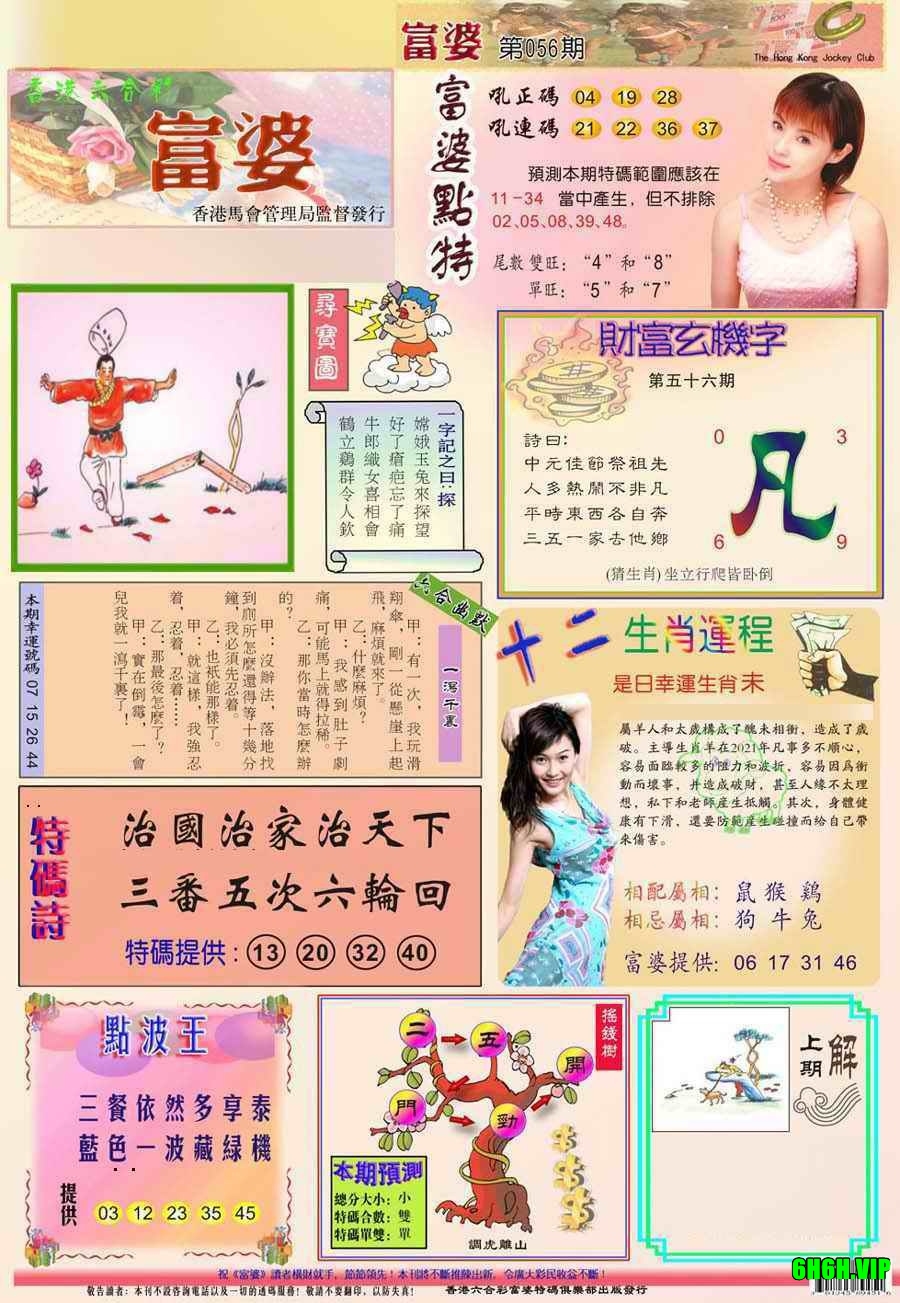 富婆 第056期
The Hong Kong Jockey Club
香港六合彩
富婆
香港馬會管理局監督發行
富婆點特
吼正碼 04 19 28
吼連碼 21 22 36 37
預測本期特碼範圍應該在
11-34 當中產生，但不排除
02、05、08、39、48。
尾數雙旺：“4”和“8”
單旺：“5”和“7”
尋寶圖
一字記之曰：探
嫦娥玉兔來探望
好了瘡疤忘了痛
牛郎織女喜相會
鶴立鷄群令人欽
財富玄機字
第五十六期
詩曰：
中元佳節祭祖先
人多熱鬧不非凡
平時東西各自奔
三五一家去他鄉
0 3
凡
6 9
(猜生肖) 坐立行爬皆卧倒
六合幽默
一瀉千裏
甲：有一次，我玩滑
翔傘，剛一從懸崖上起
飛，麻煩就來了。
乙：什麼麻煩？
甲：我感到肚子劇
痛，可能馬上就得拉稀。
乙：那你當時怎麼辦
的？
甲：沒辦法，落地找
到廁所怎麼還得等十幾分
鐘，我必須先忍着。
乙：也衹能那樣了。
甲：就這樣，我強忍
着，忍着，忍着……
乙：那最後怎麼了？
甲：實在倒霉，一會
兒我就一瀉千裏了！
本期幸運號碼 07 15 26 44
十二生肖運程
是日幸運生肖未
屬羊人和太歲構成了醜未相衝，造成了歲
破。主導生肖羊在2021年凡事多不順心，
容易面臨較多的阻力和波折，容易因爲衝
動而壞事，并造成破財，甚至人緣不太理
想，私下和老師産生抵觸。其次，身體健
康有下滑，還要防範産生碰撞而給自己帶
來傷害。
相配屬相：鼠 猴 鷄
相忌屬相：狗 牛 兔
富婆提供：06 17 31 46
特碼詩
治國治家治天下
三番五次六輪回
特碼提供：13 20 32 40
點波王
三餐依然多享泰
藍色一波藏緑機
提供 03 12 23 35 45
搖錢樹
二 五 開
門 勁
本期預測
總分大小：小
特碼合數：雙
特碼單雙：單
調虎離山
上期 解
祝《富婆》讀者橫財就手，節節領先！本刊將不斷推陳出新，令廣大彩民收益不斷！
敬告讀者：本刊不設咨詢電話以及一切的透碼服務！敬請不要翻印，以防失真！ 香港六合彩富婆特碼俱樂部出版發行
6H6H.VIP